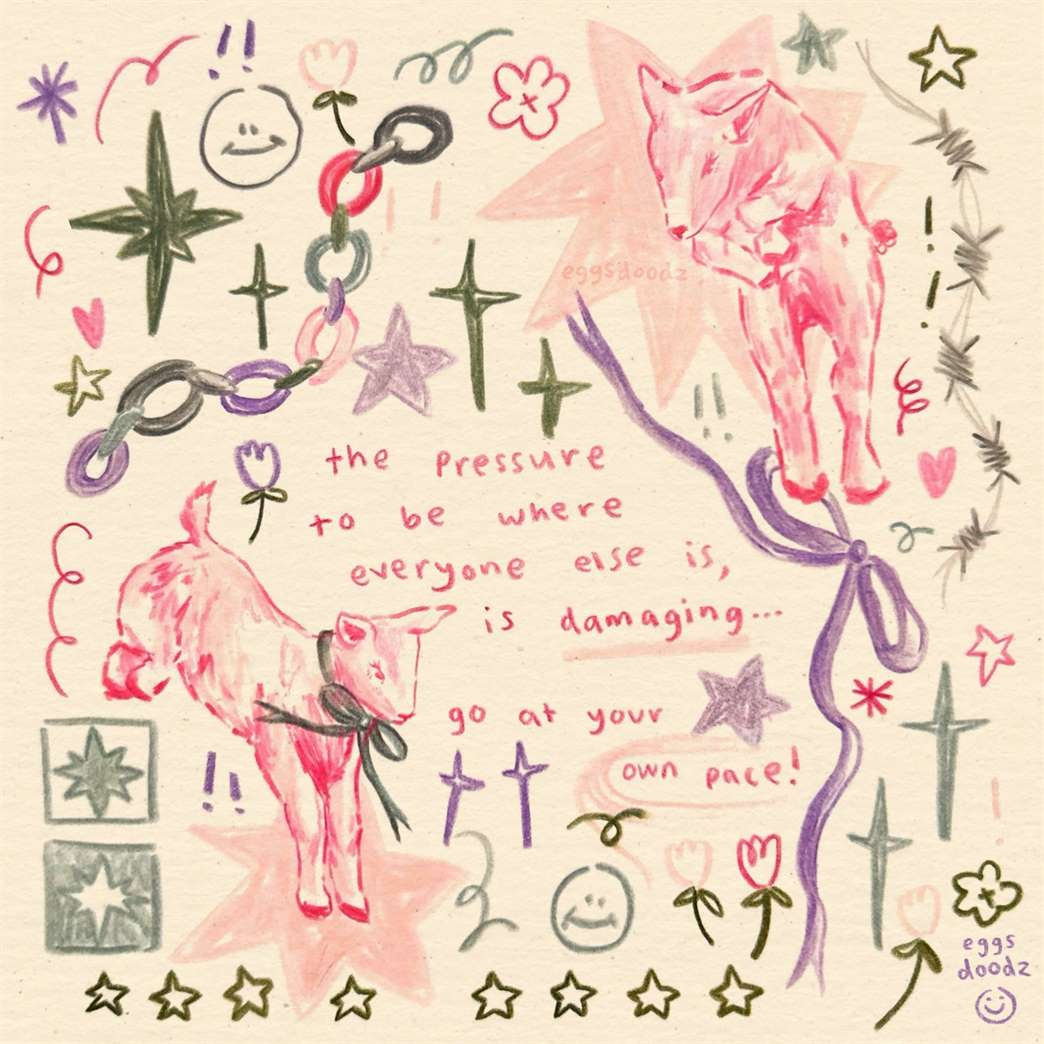 eggsdoodz
the pressure
to be where
everyone else is,
is damaging...
go at your
own pace!
eggs
doodz